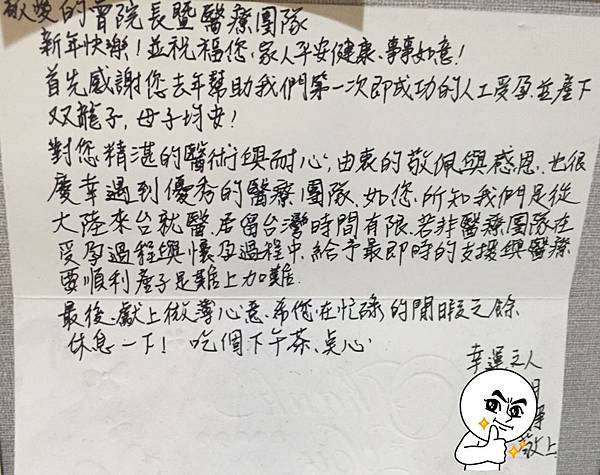 敬愛的曾院長暨醫療團隊
新年快樂！並祝福您、家人平安健康、事事如意！
首先感謝您去年幫助我們第一次即成功的人工受孕並產下
双龍子，母子均安！
對您精湛的醫術與耐心，由衷的敬佩與感恩、也很
慶幸遇到優秀的醫療團隊、如您所知我們是從
大陸來台就醫、居留台灣時間有限、若非醫療團隊在
受孕過程與懷孕過程中、給予最即時的支援與醫療
要順利產子是難上加難、
最後、獻上微薄心意、希您在忙碌的閒暇之餘
休息一下！吃個下午茶、點心
幸運之人
敬上